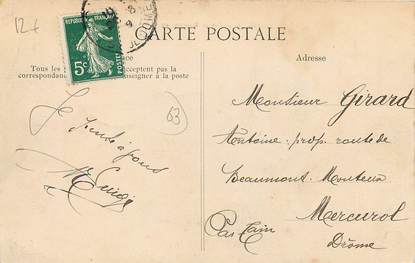 12+
REPUBLIQUE FRANÇAISE
5c
POSTES
CARTE POSTALE
Tous les
acceptent pas la
correspondan
enseigner à la poste
Adresse
Je
63
Monsieur Girard
Antoine prop. route de
Beaumont-Monteux
Mercurol
Par Tain
Drôme